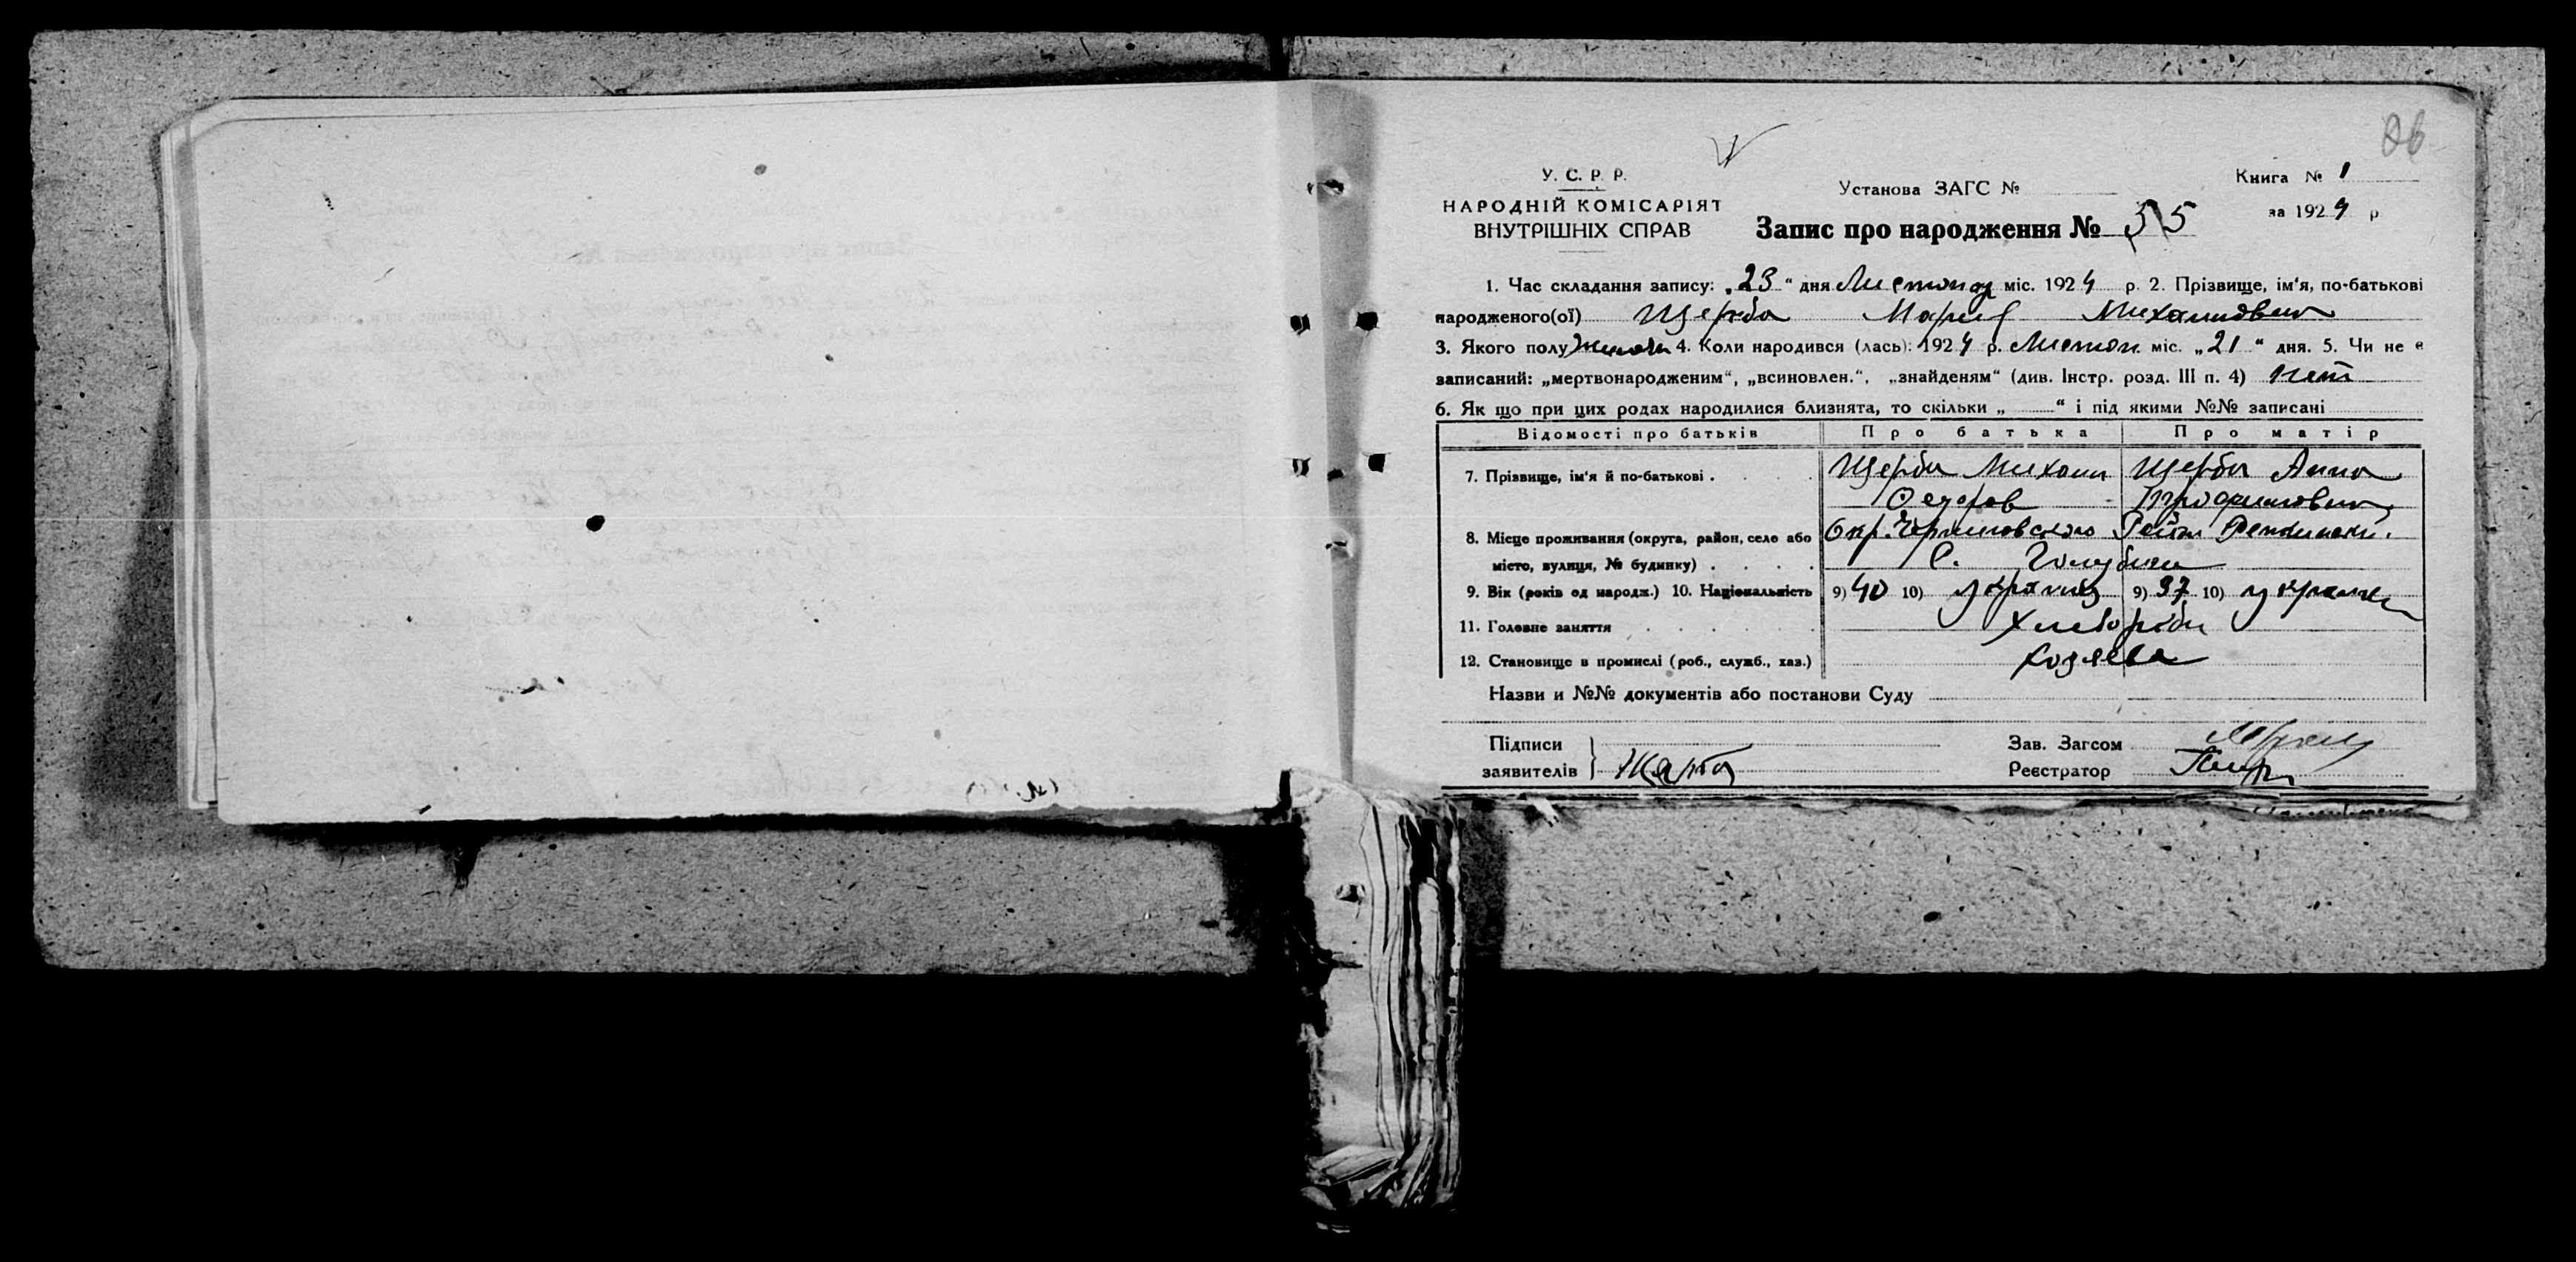 26
У. С. Р. Р.
НАРОДНІЙ КОМІСАРІЯТ
ВНУТРІШНІХ СПРАВ
Установа ЗАГС №
Запис про народження № 55
Книга № 1
за 1924 р
1. Час складання запису: „23“ дня Листопад міс. 1924 р. 2. Прізвище, ім'я, по-батькові
народженого(ої) Щерба Мария Михайловна
3. Якого полу 4. Коли народився (лась): 1924 р. Листоп. міс. „21“ дня. 5. Чи не є
записаний: „мертвонародженим“, „всиновлен.“, „знайденям“ (див. Інстр. розд. III п. 4) Нет
6. Як що при цих родах народилися близнята, то скільки „ “ і під якими №№ записані
Відомості про батьків Про батька Про матір
7. Прізвище, ім'я й по-батькові . Щерба Михаил Щерба Анна
Федоров Трофимовна
8. Місце проживання (округа, район, село або Окр. Черниговского Район Репкинский.
місто, вулиця, № будинку) . С. Голубичи
9. Вік (років од народж.) 10. Національність 9) 40 10) 9) 37 10)
11. Головне заняття Хлебороби
12. Становище в промислі (роб., служб., хаз.) хозяева
Назви и №№ документів або постанови Суду
Підписи
заявителів
Зав. Загсом
Реєстратор